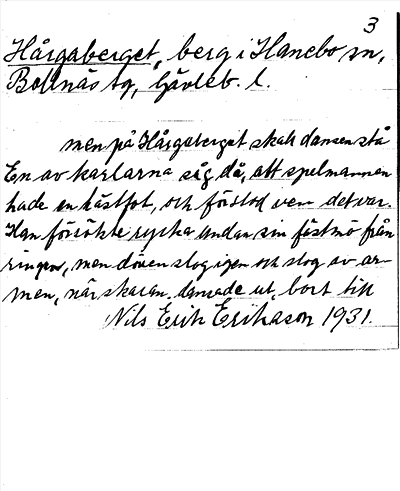 3
Hårgaberget, berg i Hanebo sn,
Bollnäs tg, Gävleb. l.
men på Hårgaberget skall dansen stå
En av karlarna såg då, att spelmannen
hade en hästfot, och förstod vem det var.
Han försökte rycka undan sin fästmö från
ringen, men dörren slog igen och slog av ar-
men, när skaran dansade ut, bort till
Nils Erik Erikason 1931.